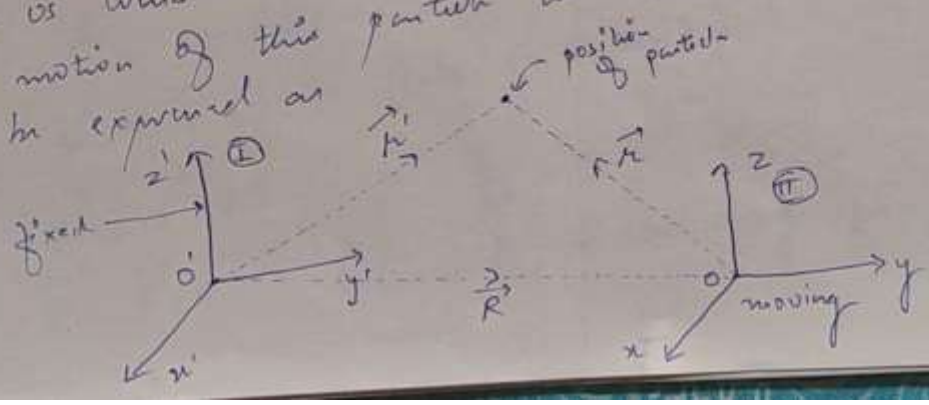 of this particle
motion
be expressed as
position
of particle
z' I
r'
r
z
II
fixed
O'
y'
R
O
moving
y
x'
x